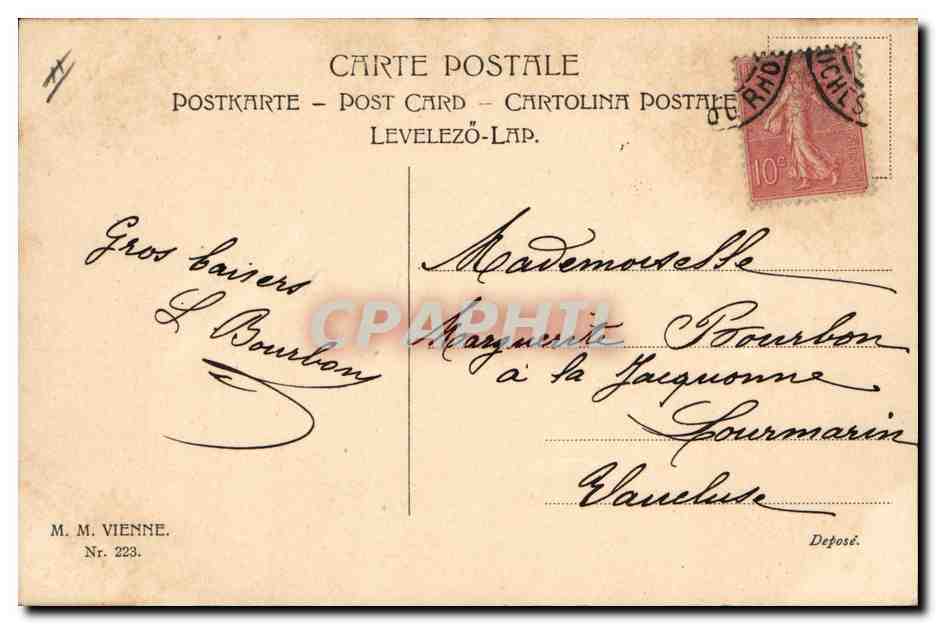 CARTE POSTALE
POSTKARTE – POST CARD – CARTOLINA POSTALE
LEVELEZŐ-LAP.
DU RHO
UCHES
10c
Gros baisers
L Bourbon
Mademoiselle
Marguerite Bourbon
à la Jacquonne
Lourmarin
Vaucluse
CPAPHIL
M. M. VIENNE.
Nr. 223.
Deposé.